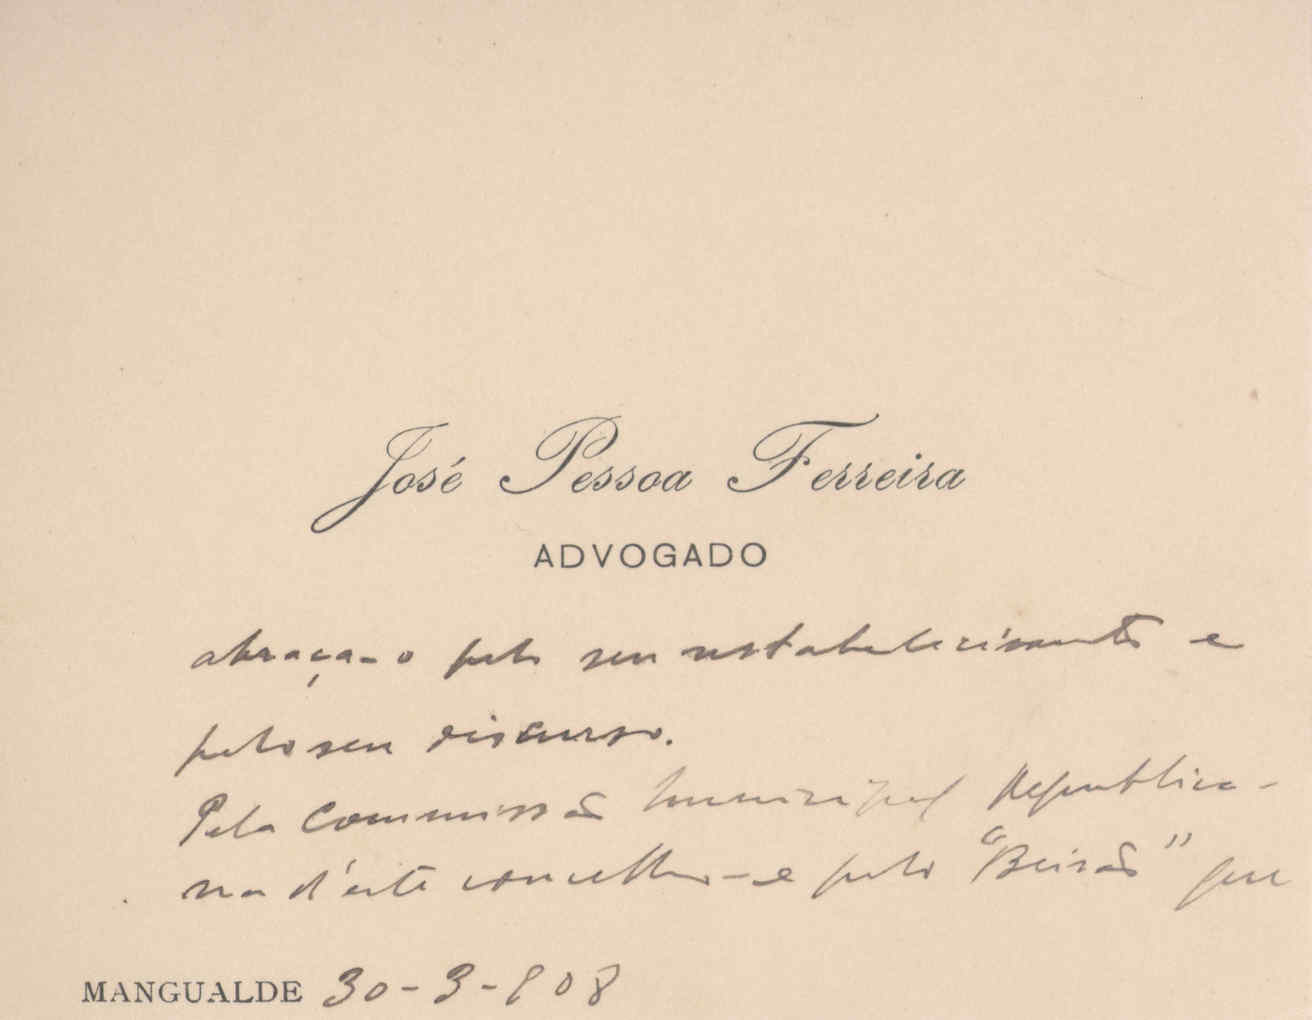 José Pessoa Ferreira
ADVOGADO
abraça-o pelo seu restabelecimento e
pelo seu discurso.
Pela Commissão Municipal Republica-
na d'este concelho - e pelo "Beirão" que
MANGUALDE 30-3-908